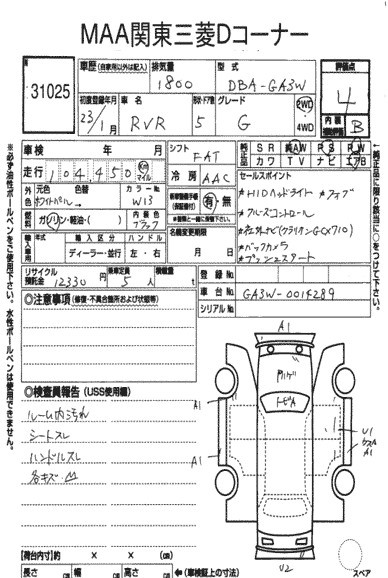 MAA関東三菱Dコーナー
31025
車歴(自家用以外は記入) 排気量 型式 評価点
1800 DBA-GA3W 4
初度登録年月 車名 形状・ドア数 グレード 2WD 内装
23/1 RVR 5 G 4WD B
車検 年 月
走行 104450 Km マイル
シフト FAT
冷房 AAC
純正品 SR AW PS PW
カワ TV ナビ エアB
外色 元色 色替 カラーNo
ホワイトパール→ W13
燃料 ガソリン・軽油・( ) 内装色 ブラック
有・無
※書類と一緒に提示して下さい。
セールスポイント
*HIDヘッドライト *フォグ
*クルーズコントロール
*社外ナビ(クラリオンGCX710)
*バックカメラ
*プッシュスタート
輸入車 年式 輸入区分 ハンドル
ディーラー・並行 左・右
名義変更期限
月 日
リサイクル預託金 12330円 乗車定員 5人 積載量 t
登録No.
車台No. GA3W-0014289
シリアルNo.
◎注意事項(修復・不具合箇所および状態等)
◎検査員報告(USS使用欄)
ルーム内汚れ
シートスレ
ハンドルスレ
各キズ
A1
トビA
A1
A1
U1
A1
U2
【荷台内寸】約 × × (cm)
長さ cm 幅 cm 高さ cm ←(車検証上の寸法)
スペア
※必ず油性ボールペンをご使用下さい。水性ボールペンは使用できません。
←純正品に限り該当に○をつけて下さい。